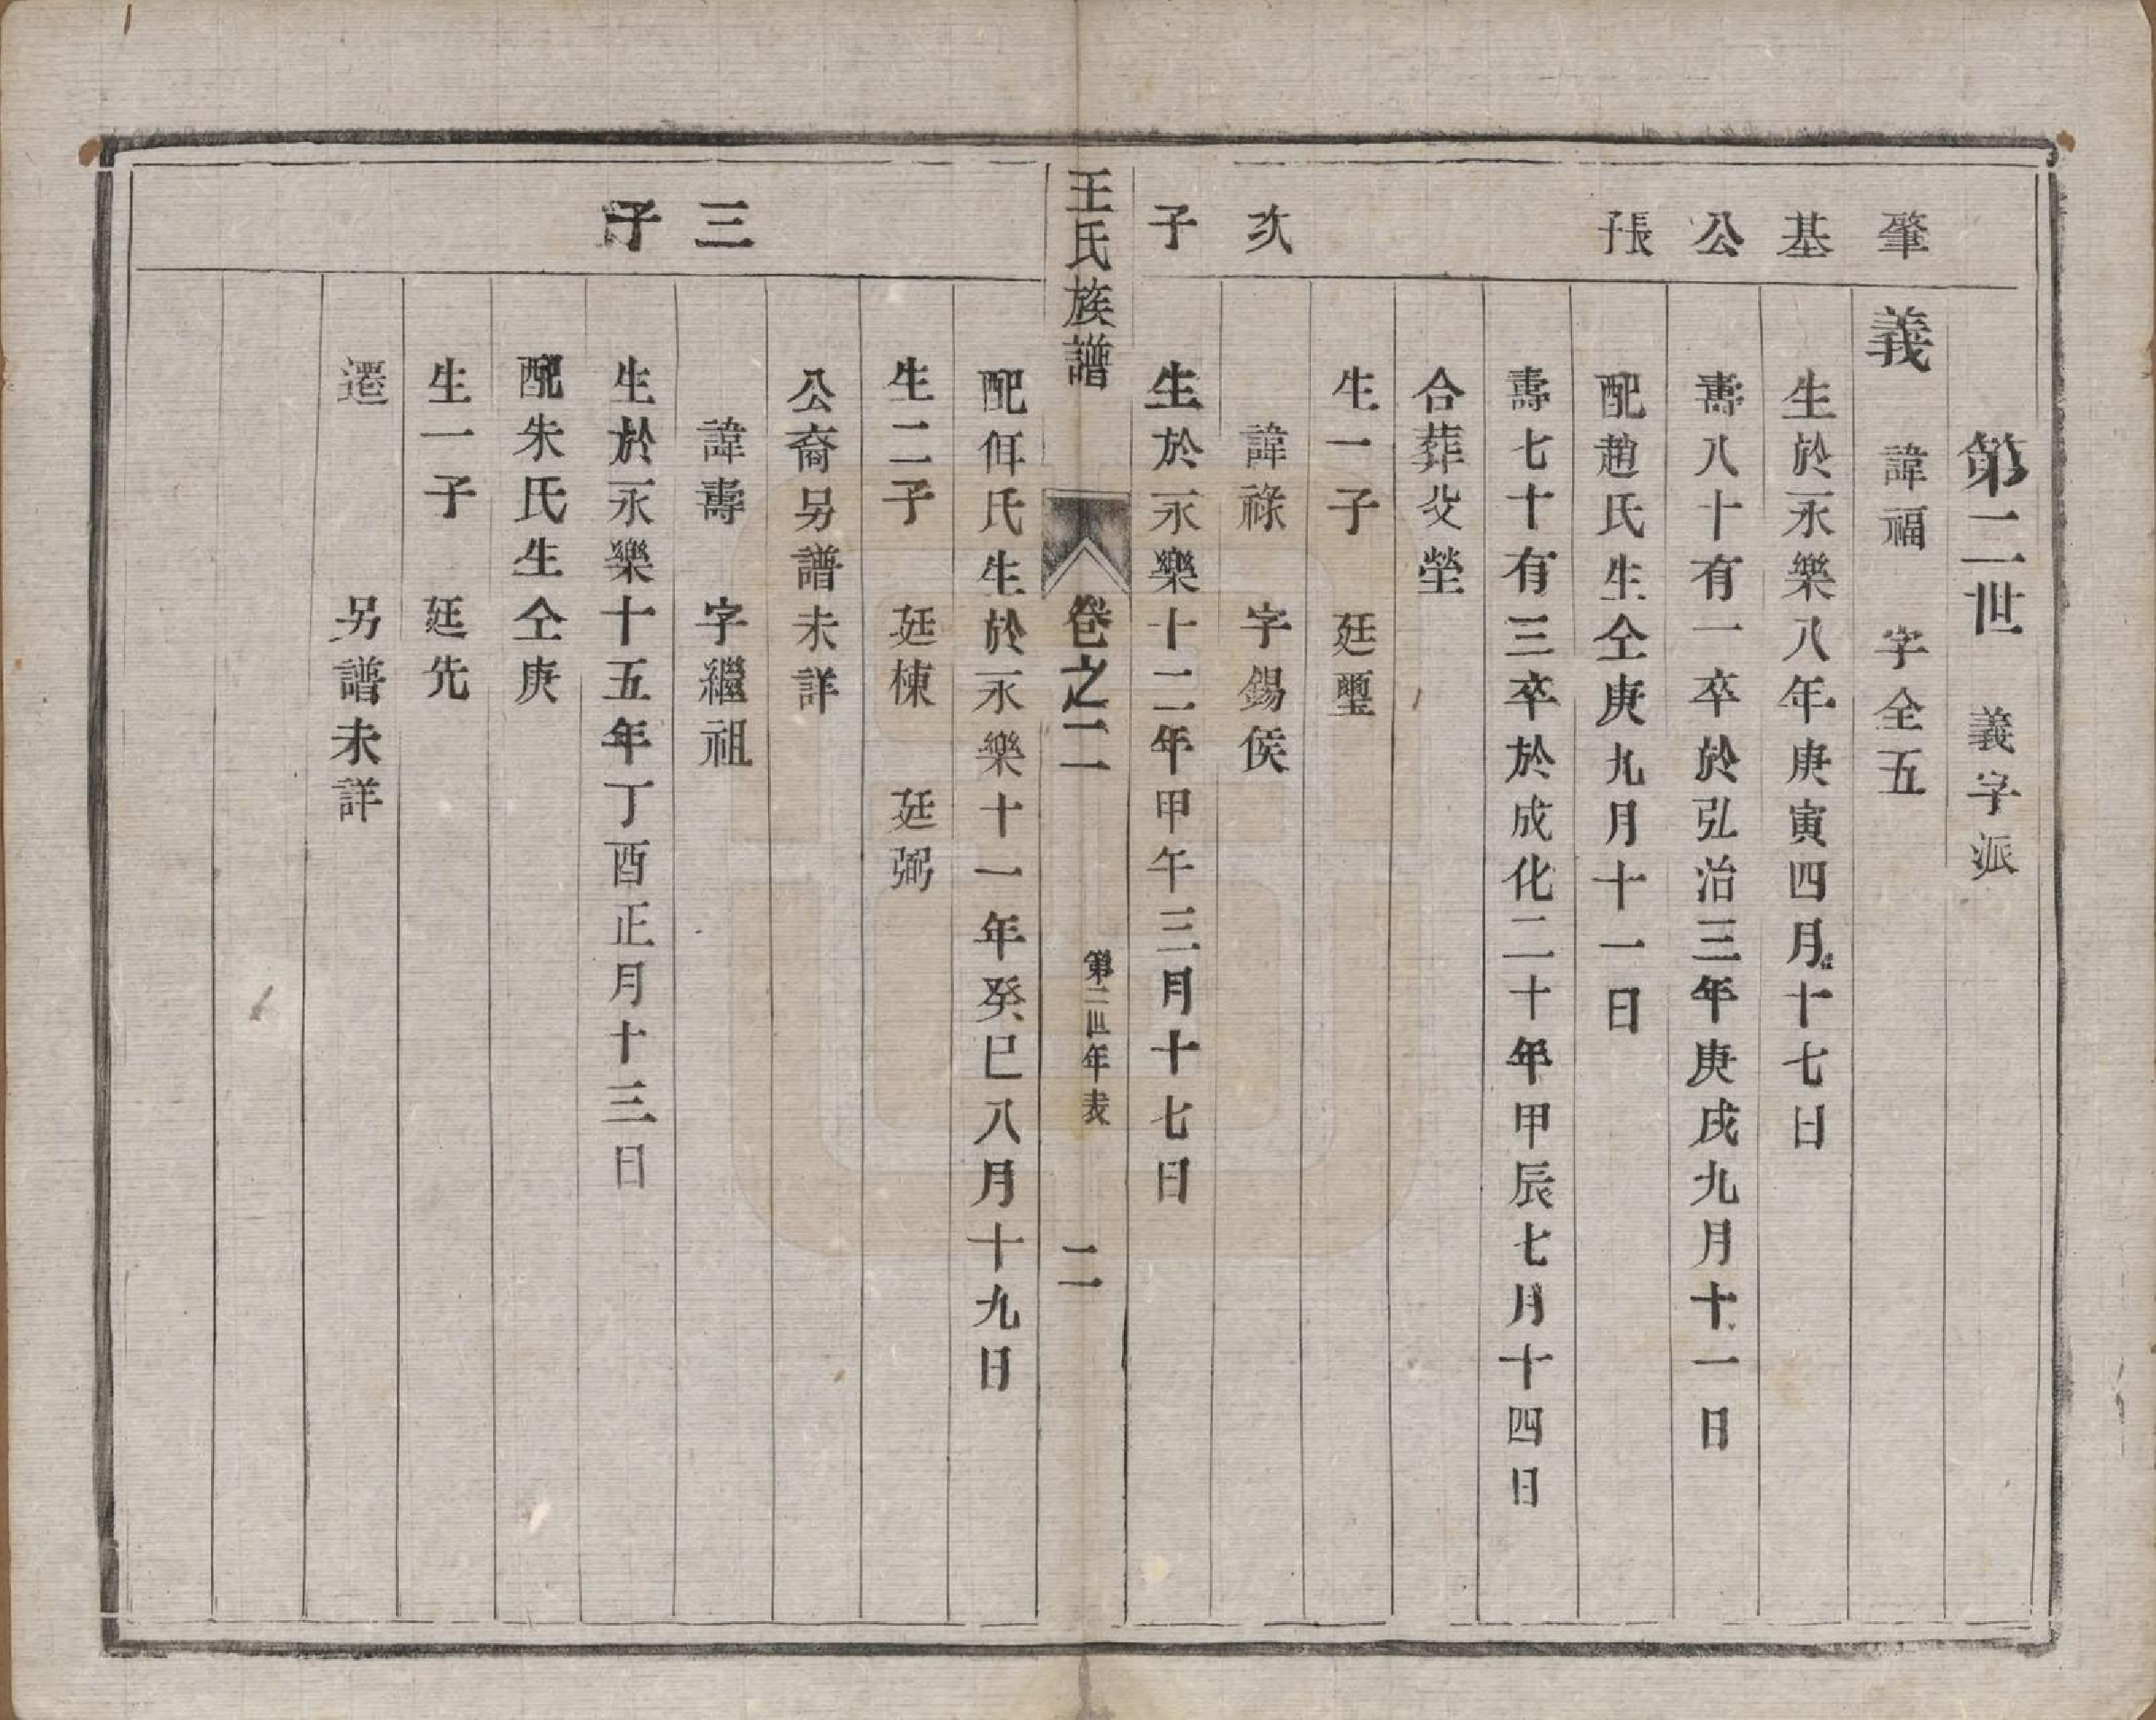 第二世　義字派
肇基公長子
義　諱福　字全五
生於永樂八年庚寅四月十七日
壽八十有一卒於弘治三年庚戌九月十一日
配趙氏生仝庚九月十一日
壽七十有三卒於成化二十年甲辰七月十四日
合葬父塋
生一子　廷璽
次子
諱祿　字錫侯
生於永樂十二年甲午三月十七日
王氏族譜　卷之二　第二世年表　二
配佴氏生於永樂十一年癸巳八月十九日
生二子　廷棟　廷弼
公裔另譜未詳
三子
諱壽　字繼祖
生於永樂十五年丁酉正月十三日
配朱氏生仝庚
生一子　廷先
遷　另譜未詳